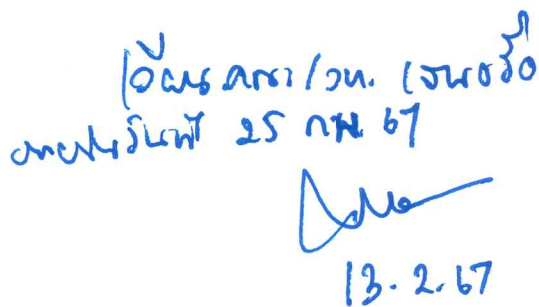 เวียนคณะ/วท. เสนอชื่อ
ภายในวันที่ 25 กพ. 67
13.2.67